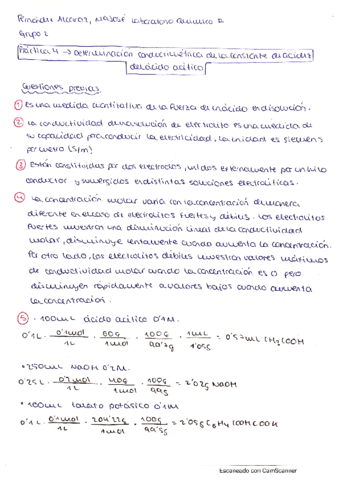 Fernández Alcaraz, Mª José Laboratorio Químico II
Grupo 2
Práctica 4 → Determinación conductimétrica de la constante de acidez
del ácido acético
Cuestiones previas.
① Es una medida cuantitativa de la fuerza de un ácido en disolución.
② La conductividad de una solución de electrolito es una medida de
su capacidad para conducir la electricidad, la unidad es siemens
por metro (S/m)
③ Están constituidas por dos electrodos, unidos externamente por un hilo
conductor y sumergidos en distintas soluciones electrolíticas.
④ La concentración molar varía con la concentración de manera
diferente en el caso de electrolitos fuertes y débiles. Los electrolitos
fuertes muestran una disminución lineal de la conductividad
molar, disminuye lentamente cuando aumenta la concentración.
Por otro lado, los electrolitos débiles muestran valores máximos
de conductividad molar cuando la concentración es 0 pero
disminuyen rápidamente a valores bajos cuando aumenta
la concentración.
⑤ • 100mL ácido acético 0'1M.
0'1L · 0'1mol/1L · 60g/1mol · 100g/ · 1mL/1'05g = 0'57mL CH3COOH
• 250mL NaOH 0'2M.
0'25L · 0'2mol/1L · 40g/1mol · 100g/99g = 2'02g NaOH
• 100mL ftalato potásico 0'1M
0'1L · 0'1mol/1L · 204'22g/1mol · 100g/99'5g = 2'05g C6H4COOHCOOK
Escaneado con CamScanner